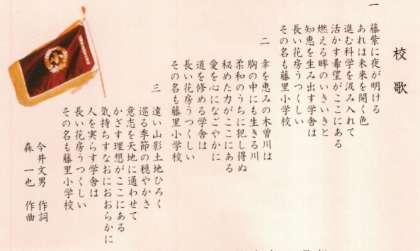 校歌
一
藤紫に夜が明ける
あれは未来を開く色
進む科学を汲み入れて
活かす希望がここにある
燃える瞳のいきいきと
知恵を生み出す学舎は
長い花房うつくしい
その名も藤里小学校
二
幸を恵みの木曽川は
胸の中にも生きる川
柔和のうちに犯し得ぬ
秘めた力がここにある
愛を心になごやかに
道を修める学舎は
長い花房うつくしい
その名も藤里小学校
三
遠い山影土地ひろく
巡る季節の穏やかさ
意志を天地に通わせて
かざす理想がここにある
気持ちすなおにおおらかに
人を実らす学舎は
長い花房うつくしい
その名も藤里小学校
今井文男 作詞
森一也 作曲